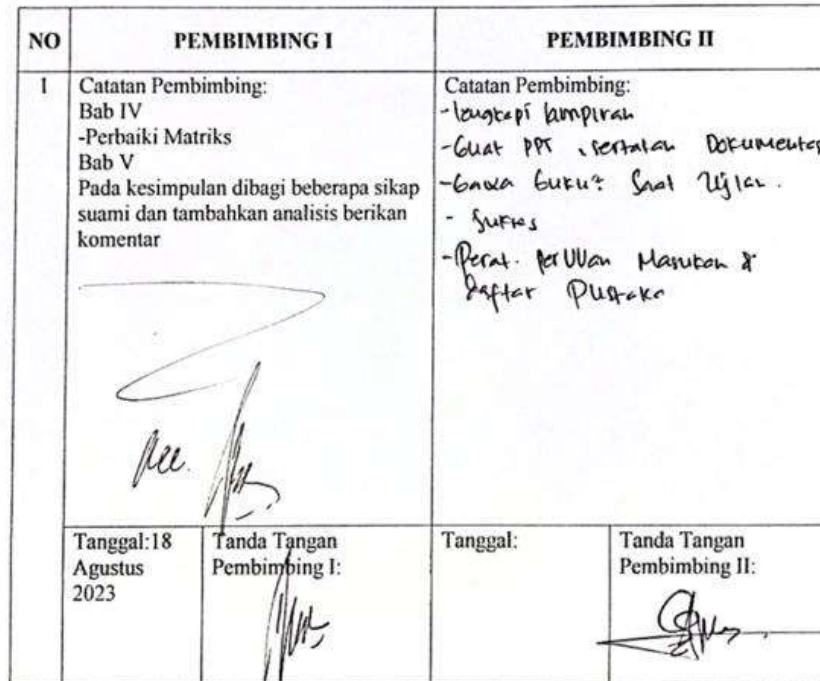 NO
PEMBIMBING I
PEMBIMBING II
1
Catatan Pembimbing:
Bab IV
-Perbaiki Matriks
Bab V
Pada kesimpulan dibagi beberapa sikap
suami dan tambahkan analisis berikan
komentar
Acc.
Catatan Pembimbing:
-lengkapi lampiran
-Buat PPT, sertakan Dokumentas
-Bawa Buku² Saat Ujian.
- Sukses
-Perat. Masukan
daftar Pustaka
Tanggal:18
Agustus
2023
Tanda Tangan
Pembimbing I:
Tanggal:
Tanda Tangan
Pembimbing II: